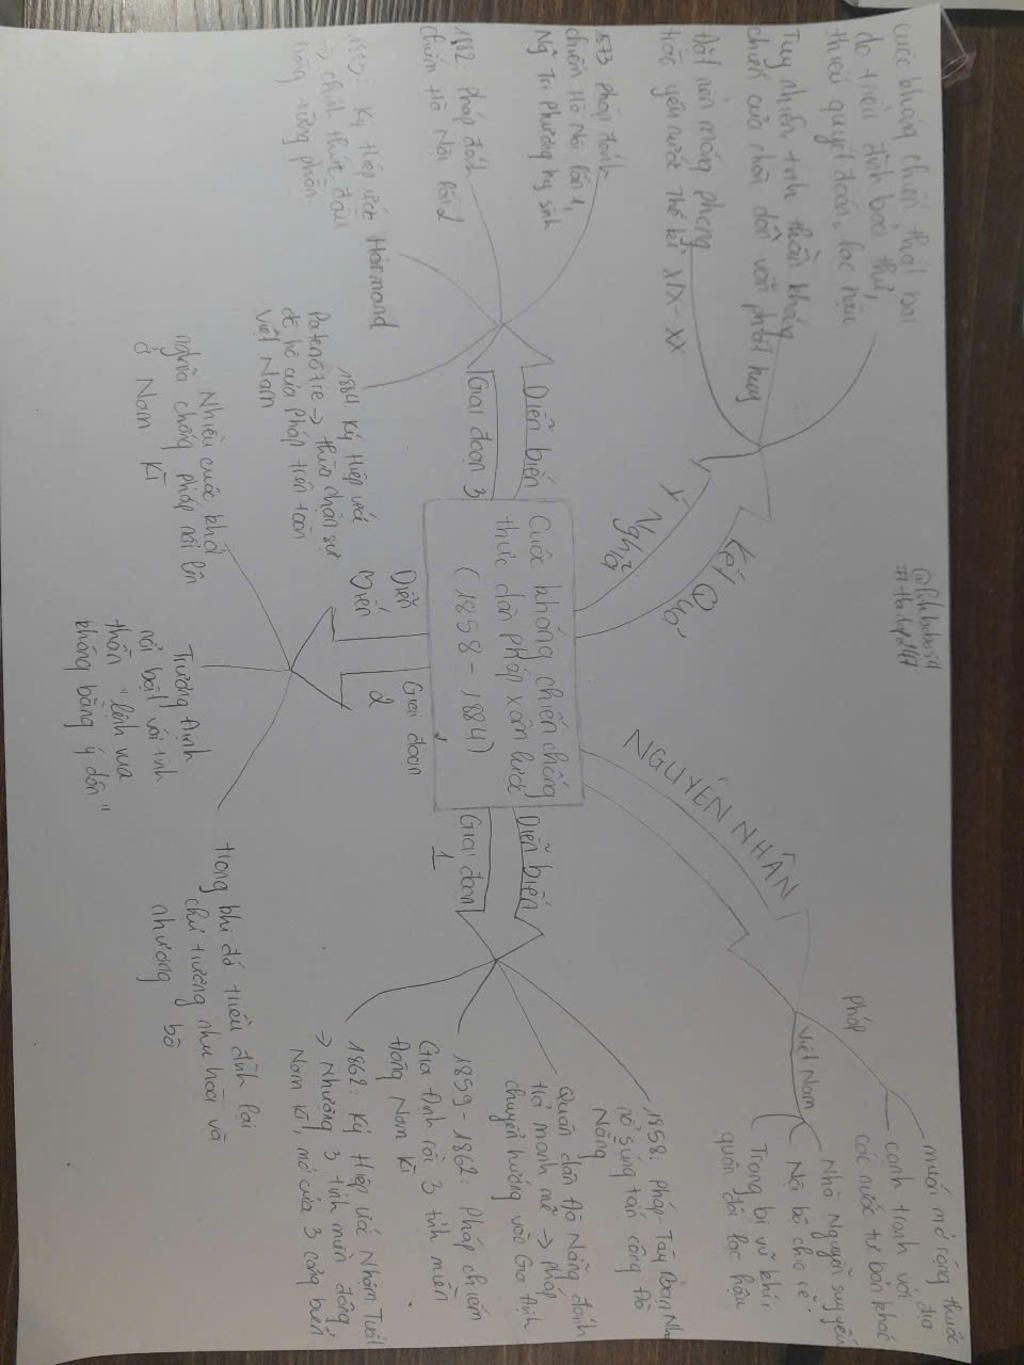 Cuộc kháng chiến chống
thực dân Pháp xâm lược
(1858 - 1884)
NGUYÊN NHÂN
Pháp
muốn mở rộng thuộc
địa
cạnh tranh với
các nước tư bản khác
Việt Nam
Nhà Nguyễn suy yếu
Nội bộ chia rẽ
Trang bị vũ khí,
quân đội lạc hậu
Diễn biến
Giai đoạn
1
1858: Pháp - Tây Ban Nha
nổ súng tấn công Đà
Nẵng
Quân dân Đà Nẵng đánh
trả mạnh mẽ → Pháp
chuyển hướng vào Gia Định
1859 - 1862: Pháp chiếm
Gia Định rồi 3 tỉnh miền
Đông Nam Kì
1862: Ký Hiệp ước Nhâm Tuất
→ Nhường 3 tỉnh miền đông
Nam Kì, mở cửa 3 cảng biển
Diễn
biến
Giai đoạn
2
Nhiều cuộc khởi
nghĩa chống Pháp nổi lên
ở Nam Kì
Trương Định
nổi bật với tinh
thần "lệnh vua
không bằng ý dân"
trong khi đó triều đình lại
chủ trương nhu hoà và
nhượng bộ
Diễn biến
Giai đoạn 3
1873 Pháp đánh
chiếm Hà Nội lần 1,
Ng Tri Phương hy sinh
1882: Pháp đánh
chiếm Hà Nội lần 2
1883: Ký Hiệp ước Harmand
1884: Ký Hiệp ước
Patenôtre → thừa nhận sự
đô hộ của Pháp trên toàn
Việt Nam
Kết Quả
Ý Nghĩa
cuộc kháng chiến thất bại
do triều đình bảo thủ,
thiếu quyết đoán, lạc hậu
Tuy nhiên tinh thần kháng
chiến của nhân dân vẫn phát huy
đặt nền móng phong
trào yêu nước thế kỉ XIX - XX